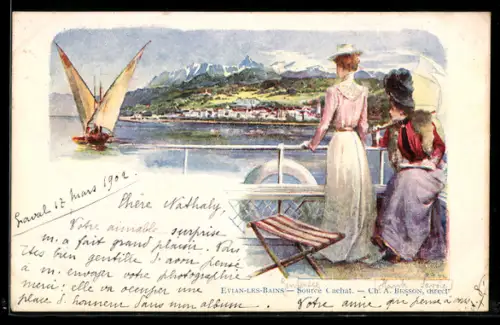 Laval 17 mars 1902
Chère Nathaly,
Votre aimable surprise
m'a fait grand plaisir. Vous
êtes bien gentille d'avoir pensé
à m'envoyer votre photographie
merci: elle va occuper une
place d'honneur dans mon album.
EVIAN-LES-BAINS — Source Cachat. — Ch. A. BESSON, direct
Votre amie qui pense à vous